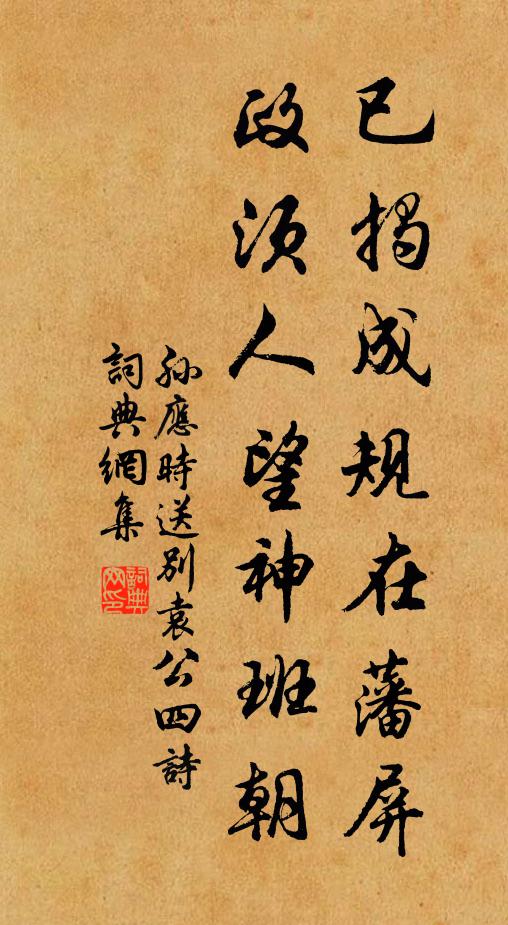 已揭成規在藩屏
政須人望神班朝
孫應時送別袁公四詩
詞典網集
詞典网印